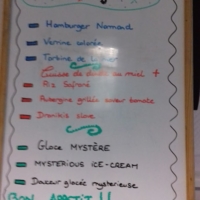 Hamburger Normand
Verrine colorée
Terrine de
Cuisse de au miel +
Riz Safrané
Aubergine grillée saveur
Glace MYSTÈRE
MYSTERIOUS ICE-CREAM
Douceur glacée mysterieuse
BON APPETIT !!